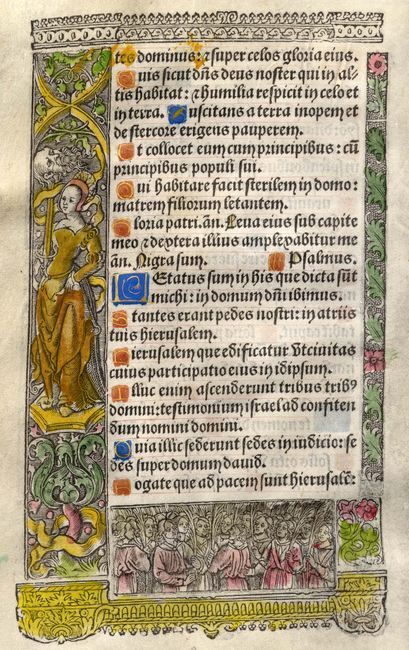 tes dominus: ⁊ super celos gloria eius.
Quis sicut dñs deus noster qui in al-
tis habitat: ⁊ humilia respicit in celo et
in terra. Suscitans a terra inopem et
de stercore erigens pauperem.
Ut collocet eum cum principibus: cũ
principibus populi sui.
Qui habitare facit sterilem in domo:
matrem filiorum letantem.
Gloria patri. añ. Leua eius sub capite
meo ⁊ dextera illius amplexabitur me
añ. Nigra sum. Psalmus.
LEtatus sum in his que dicta sũt
michi: in domum dñi ibimus.
Stantes erant pedes nostri: in atriis
tuis hierusalem.
Hierusalem que edificatur vt ciuitas
cuius participatio eius in idipsum.
Illuc enim ascenderunt tribus tribꝰ
domini: testimonium israel ad confiten
dum nomini domini.
Quia illic sederunt sedes in iudicio: se
des super domum dauid.
Rogate que ad pacem sunt hierusalẽ: